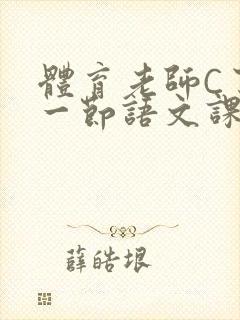 體育老師C
一節語文課
薛皓垠